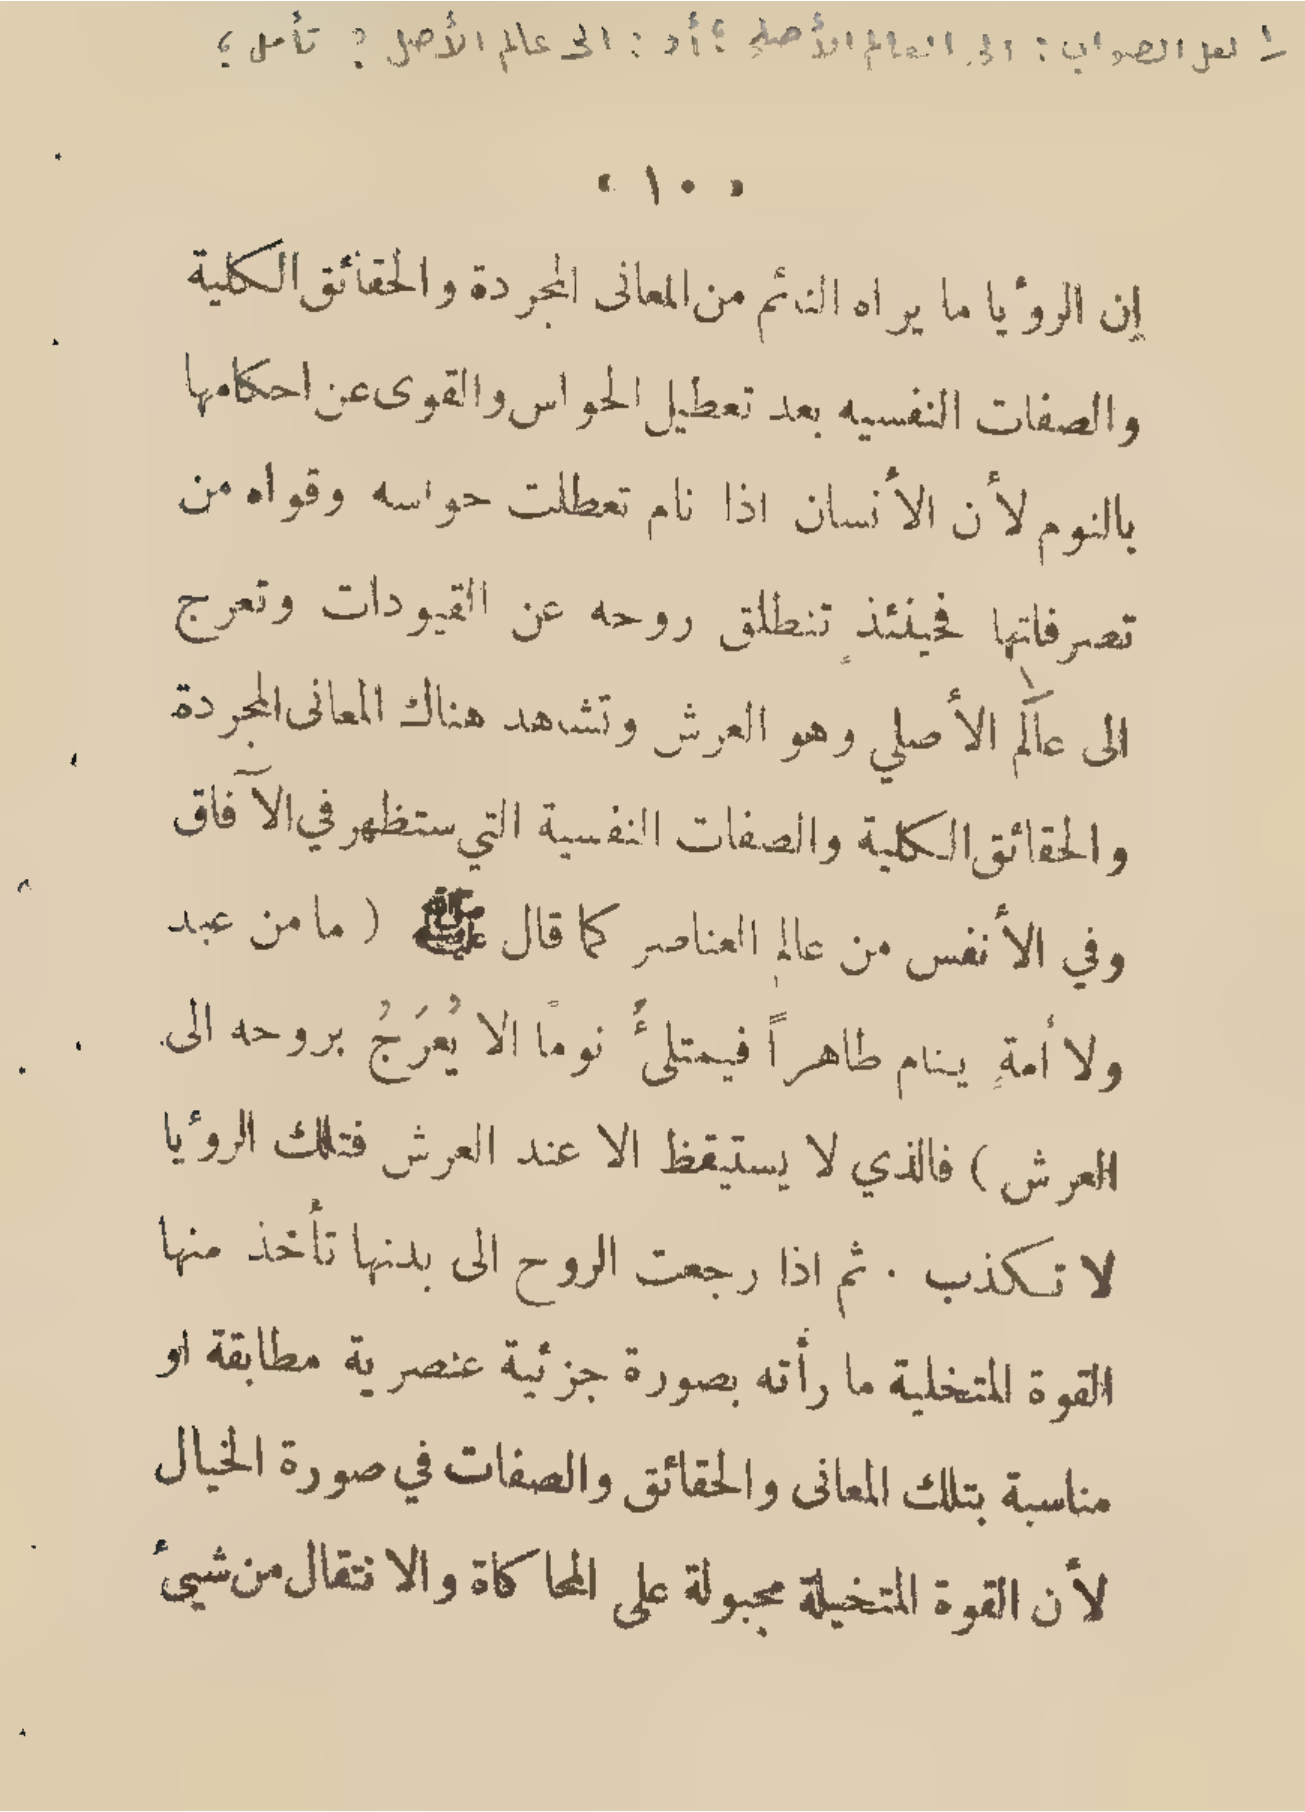 ١ لعل الصواب : الى العالم الأصلي ؟ أو : الى عالم الأصل ؟ تأمل ؟
« ١٠ »
إن الروٴيا ما يراه النائم من المعانى المجردة والحقائق الكلية
والصفات النفسيه بعد تعطيل الحواس والقوى عن احكامها
بالنوم لأن الأنسان اذا نام تعطلت حواسه وقواه من
تصرفاتها فحينئذٍ تنطلق روحه عن القيودات وتعرج
الى عالَم الأصلي وهو العرش وتشاهد هناك المعانى المجردة
والحقائق الكلية والصفات النفسية التي ستظهر في الآفاق
وفي الأنفس من عالم العناصر كما قال ﷺ ( ما من عبد
ولا أمةٍ ينام طاهراً فيمتلىُٔ نومًا الا يُعرَجُ بروحه الى
العرش ) فالذي لا يستيقظ الا عند العرش فتلك الروٴيا
لا تكذب . ثم اذا رجعت الروح الى بدنها تأخذ منها
القوة المتخلية ما رأته بصورة جزئية عنصرية مطابقة او
مناسبة بتلك المعانى والحقائق والصفات في صورة الخيال
لأن القوة المتخيلة مجبولة على المحاكاة والانتقال من شيئ